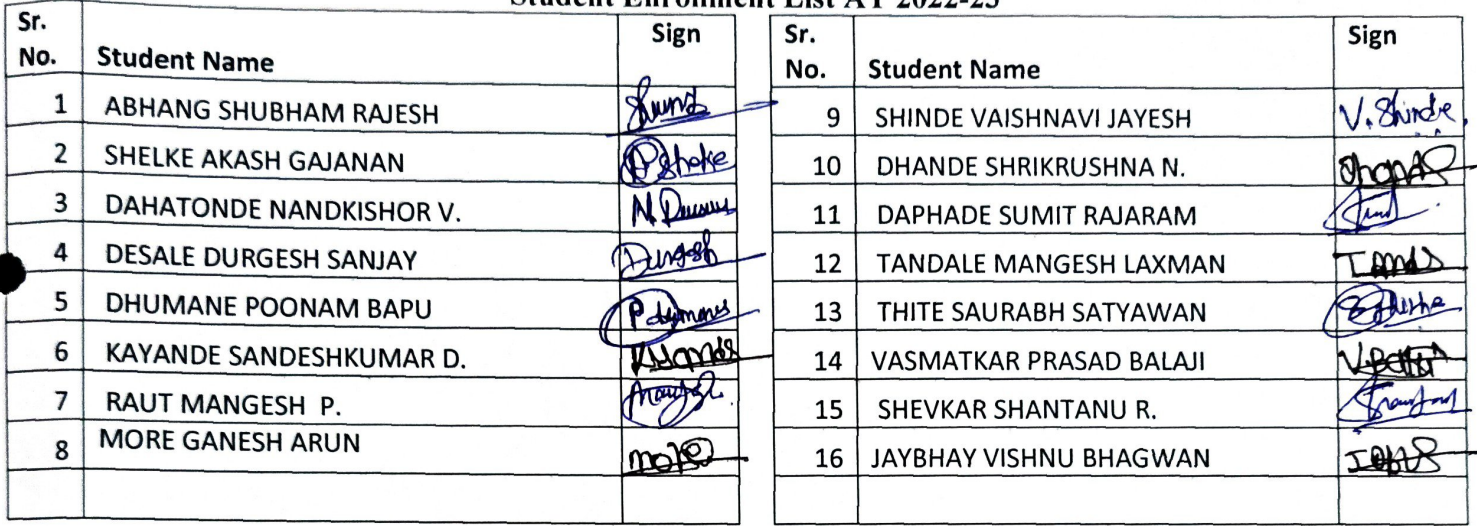 Student Enrollment List AY 2022-23
Sr. No. Student Name Sign
1 ABHANG SHUBHAM RAJESH
2 SHELKE AKASH GAJANAN
3 DAHATONDE NANDKISHOR V.
4 DESALE DURGESH SANJAY Durgesh
5 DHUMANE POONAM BAPU
6 KAYANDE SANDESHKUMAR D.
7 RAUT MANGESH P.
8 MORE GANESH ARUN more
Sr. No. Student Name Sign
9 SHINDE VAISHNAVI JAYESH V. Shinde.
10 DHANDE SHRIKRUSHNA N.
11 DAPHADE SUMIT RAJARAM
12 TANDALE MANGESH LAXMAN
13 THITE SAURABH SATYAWAN
14 VASMATKAR PRASAD BALAJI
15 SHEVKAR SHANTANU R.
16 JAYBHAY VISHNU BHAGWAN